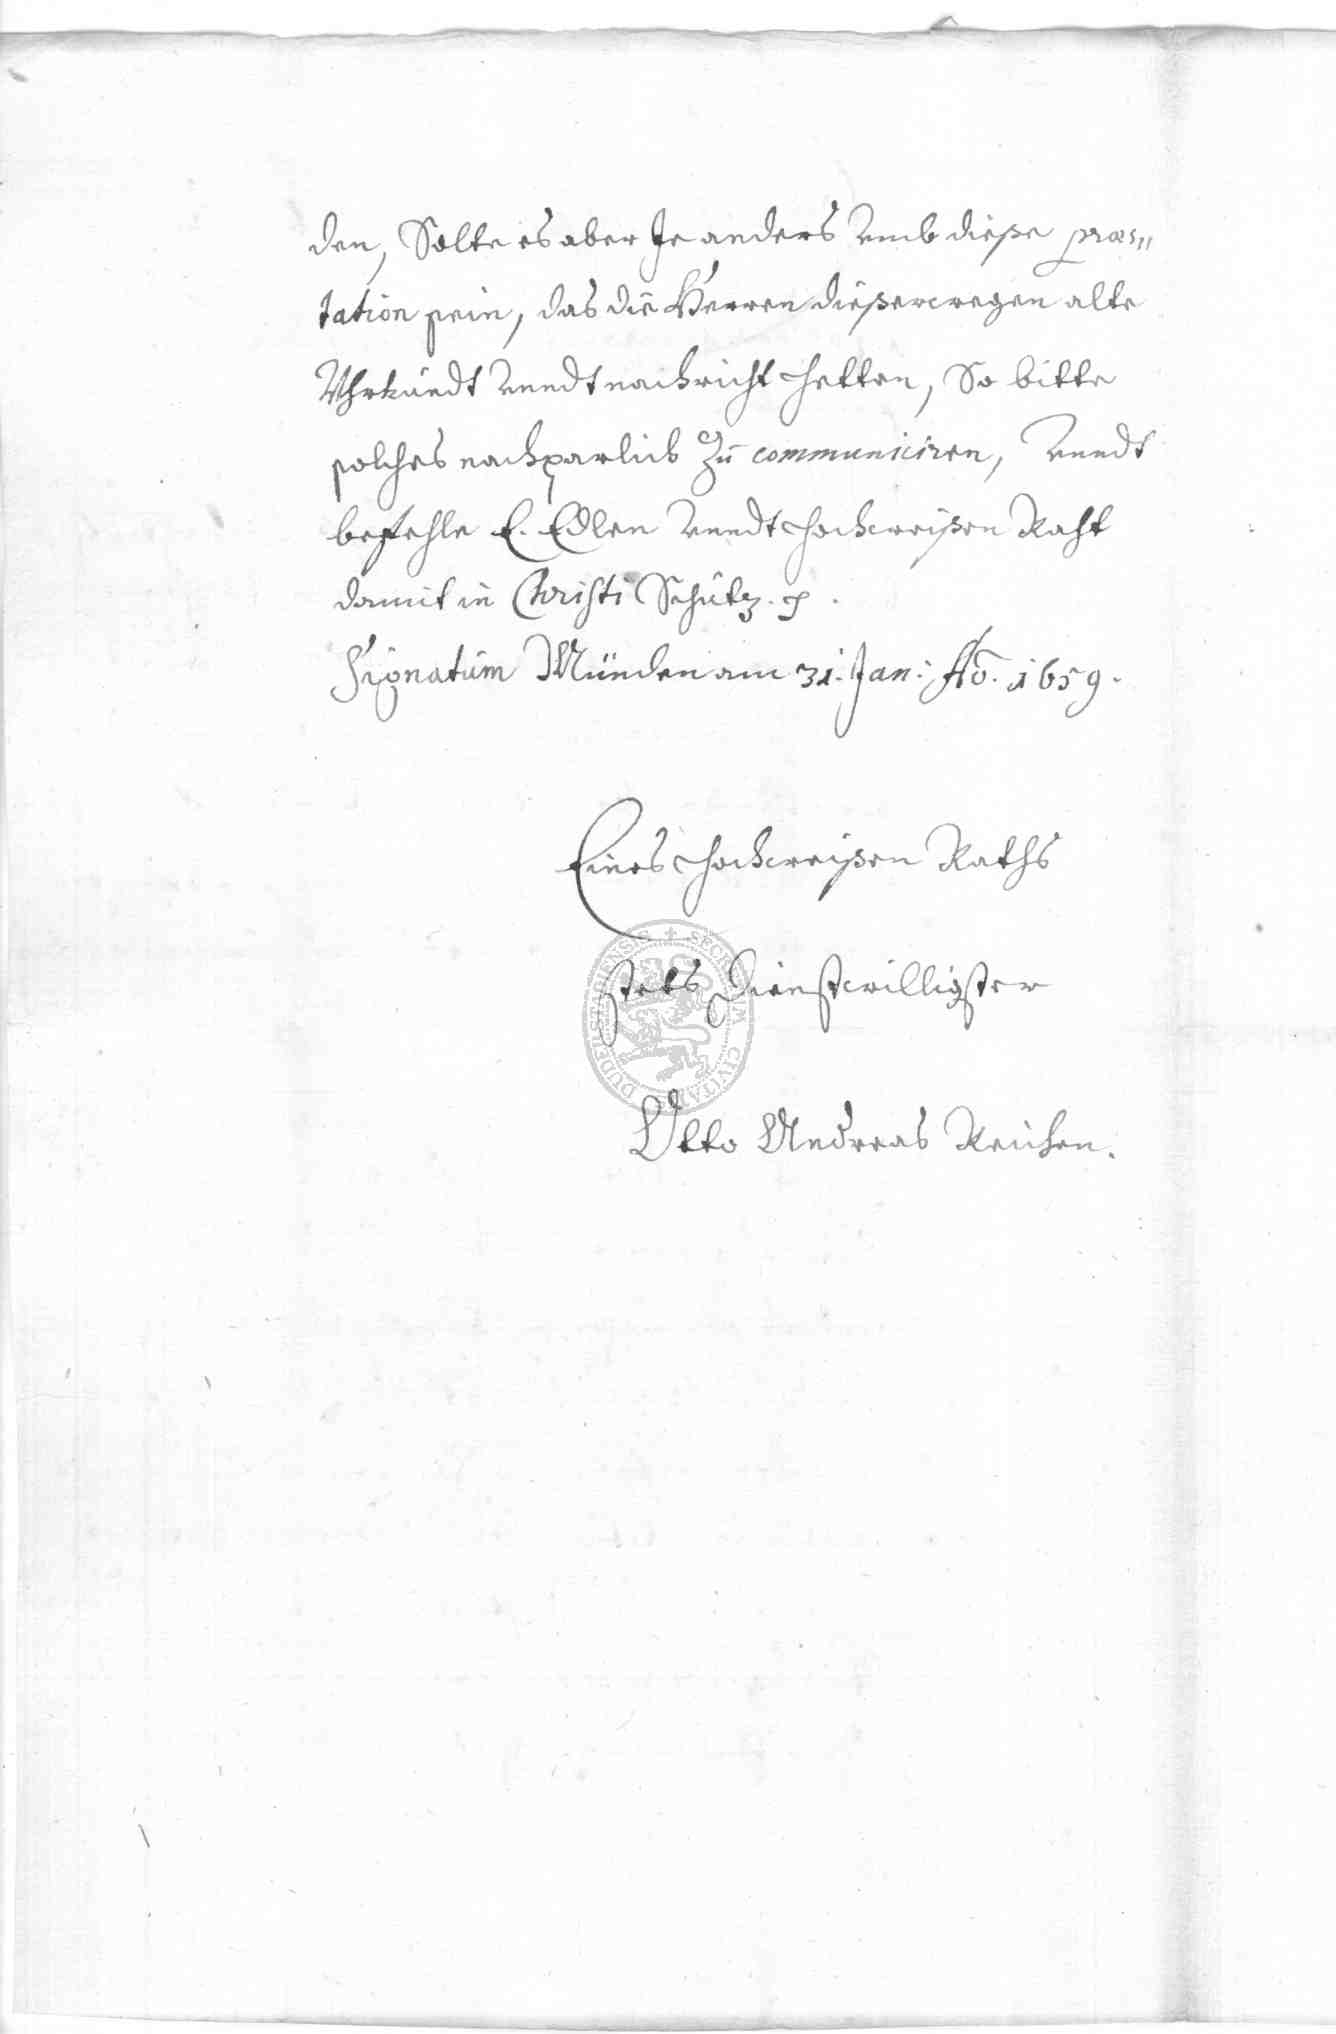 den, Solte es aber Je anders vmb dieße præs„
tation sein, das die Herren dießerwegen alte
Vhrkundt vnndt nachricht hetten, So bitte
solches nachparlich Zu communiciren, vnndt
befehle E. Edlen vnndt hochweißen Raht
damit in Christi Schutz.
Signatum Münden am 31. Jan: Aō. 1659.
Eines hochweißen Raths
stets Dienstwilligster
Otto Andreas
SECRETUM CIVITATIS DUDERSTADIENSIS